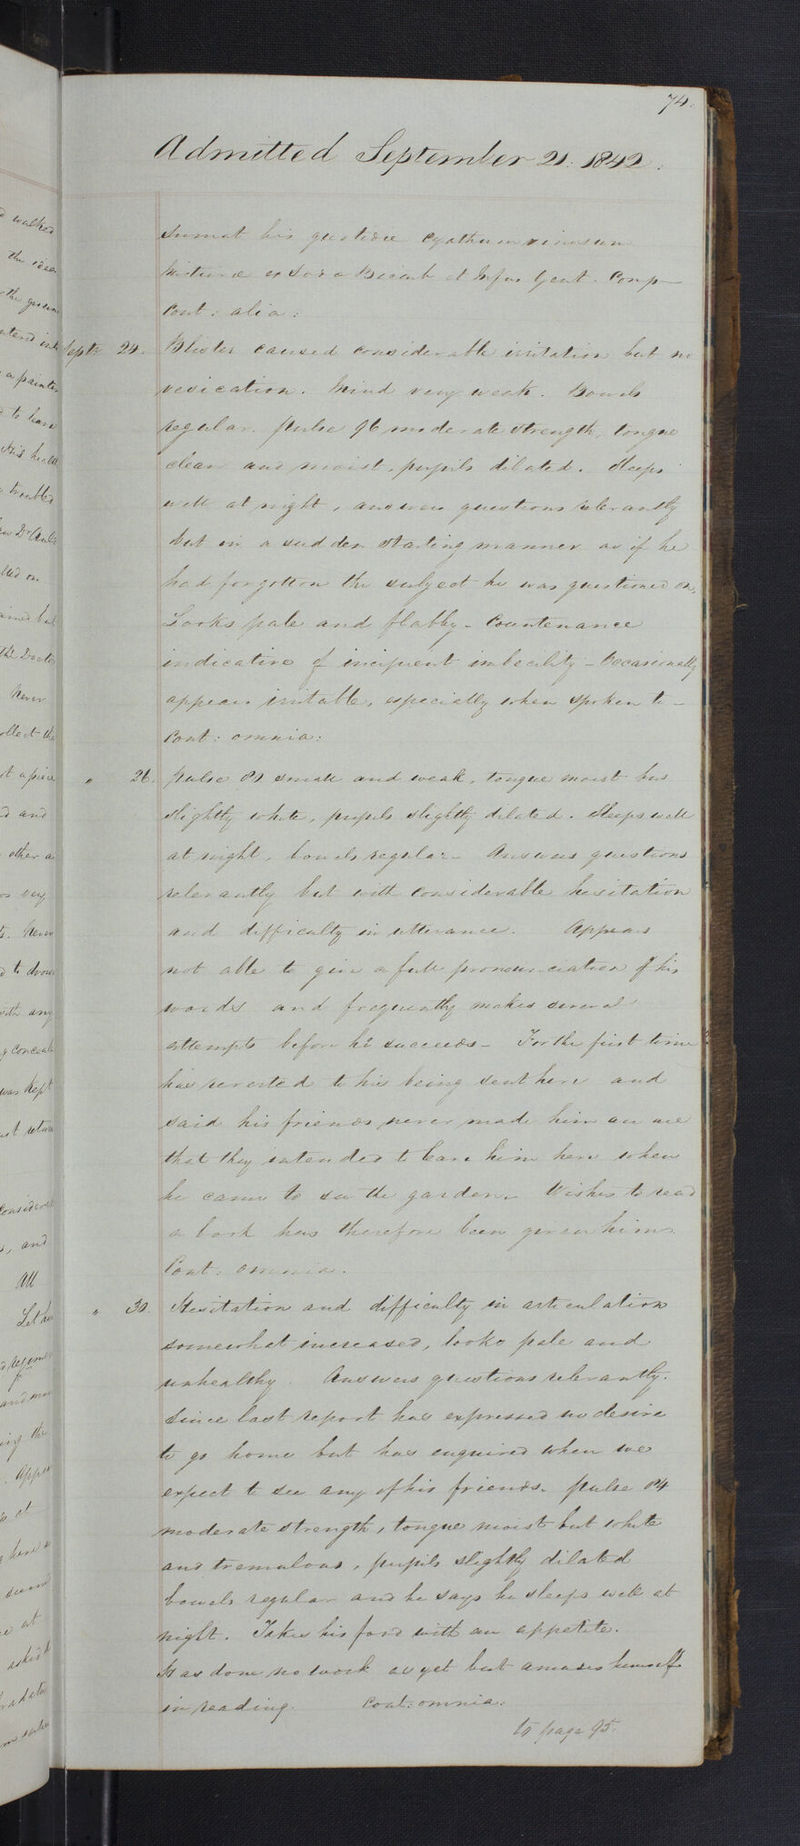 74.
Admitted September 21. 1842.
Sumat bis quotidie Cyathum vinosum
Misturæ ex Soda Bicarb et Infus Gent. Comp
Cont: alia:
Septr 24. Blister caused considerable irritation but no
vesication. Mind very weak. Bowels
regular. Pulse 96 moderate strength, tongue
clean and moist, pupils dilated. Sleeps
well at night, answers questions relevantly
but in a sudden starting manner as if he
had forgotten the subject he was questioned on.
Looks pale and flabby - Countenance
indicative of incipient imbecility - Occasionally
appears irritable, especially when spoken to -
Cont: omnia:
" 26. Pulse 81 small and weak, tongue moist but
slightly white, pupils slightly dilated. Sleeps well
at night, bowels regular. Answers questions
relevantly but with considerable hesitation
and difficulty in utterance. Appears
not able to give a full pronounciation of his
words and frequently makes several
attempts before he succeeds - For the first time
has reverted to his being sent here and
said his friends never made him aware
that they intended to leave him here when
he came to see the garden. Wishes to read
a book has therefore been given him.
Cont: omnia.
" 30. Hesitation and difficulty in articulation
somewhat increased, looks pale and
unhealthy. Answers questions relevantly.
Since last report has expressed no desire
to go home but has enquired when we
expect to see any of his friends. Pulse 84
moderate strength, tongue moist but white
and tremulous, pupils slightly dilated
bowels regular and he says he sleeps well at
night. Takes his food with an appetite.
Has done no work as yet but amuses himself
in reading. Cont: omnia.
to page 95.